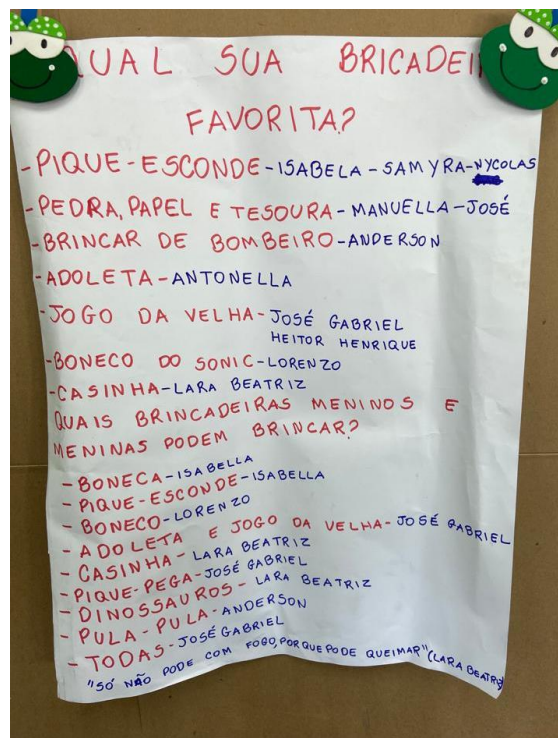 QUAL SUA BRICADEI
FAVORITA?
-PIQUE-ESCONDE-ISABELA-SAMYRA-NYCOLAS
-PEDRA, PAPEL E TESOURA-MANUELLA-JOSÉ
-BRINCAR DE BOMBEIRO-ANDERSON
-ADOLETA-ANTONELLA
-JOGO DA VELHA-JOSÉ GABRIEL
HEITOR HENRIQUE
-BONECO DO SONIC-LORENZO
-CASINHA-LARA BEATRIZ
QUAIS BRINCADEIRAS MENINOS E
MENINAS PODEM BRINCAR?
-BONECA-ISABELLA
-PIQUE-ESCONDE-ISABELLA
-BONECO-LORENZO
-ADOLETA E JOGO DA VELHA-JOSÉ GABRIEL
-CASINHA-LARA BEATRIZ
-PIQUE-PEGA-JOSÉ GABRIEL
-DINOSSAUROS-LARA BEATRIZ
-PULA-PULA-ANDERSON
-TODAS-JOSÉ GABRIEL
"SÓ NÃO PODE COM FOGO, PORQUE PODE QUEIMAR" (LARA BEATRIZ